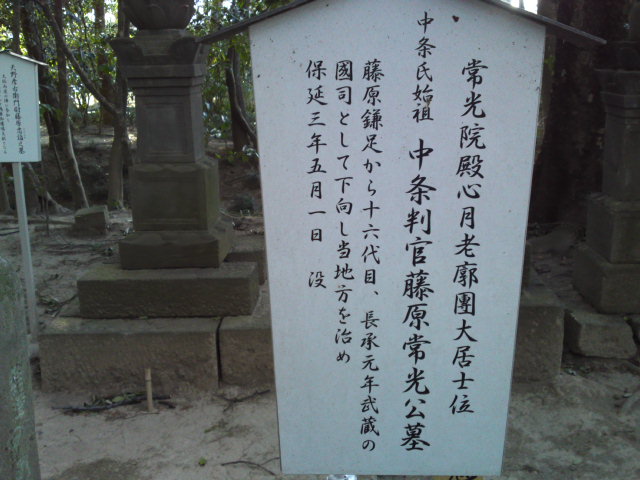 常光院殿心月老廓團大居士位
中条氏始祖 中条判官藤原常光公墓
藤原鎌足から十六代目、長承元年武蔵の
國司として下向し当地方を治め
保延三年五月一日 没